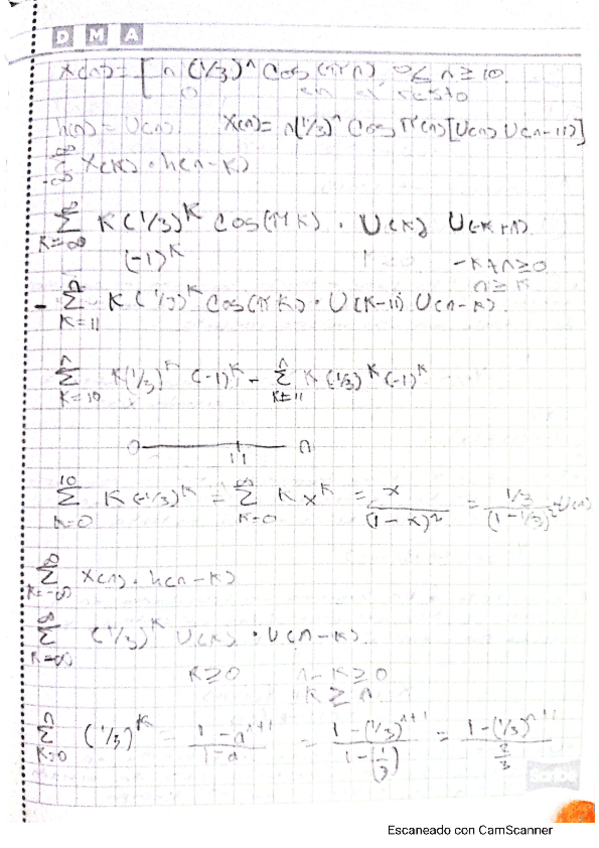 D M A
X(n) = [ n (1/3)^n Cos(πn) 0≤ n ≥ 10.
0 en el resto
h(n) = U(n) X(n) = n(1/3)^n Cos π(n) [U(n) U(n-11)]
Σ X(k) · h(n-k)
Σ K(1/3)^K Cos(πK) · U(K) U(-K+n)
(-1)^K -K+n≥0
n≥K
- Σ K=11 n K(1/3)^K Cos(πK) · U(K-11) U(n-K).
Σ K=10 n K(1/3)^K (-1)^K - Σ K=11 n K(1/3)^K (-1)^K
0 11 n
Σ K=0 10 K(-1/3)^K = Σ K=0 ∞ K x^K = x/(1-x)^2 = (1/3)/(1-1/3)^2 U(n)
Σ K=-∞ ∞ X(n) · h(n-K)
Σ K=-∞ ∞ (1/3)^K U(K) · U(n-K)
K≥0 n-K≥0
K≥n
Σ K=0 n (1/3)^K = (1-a^(n+1))/(1-a) = (1-(1/3)^(n+1))/(1-(1/3)) = (1-(1/3)^(n+1))/(2/3)
Scribe
Escaneado con CamScanner